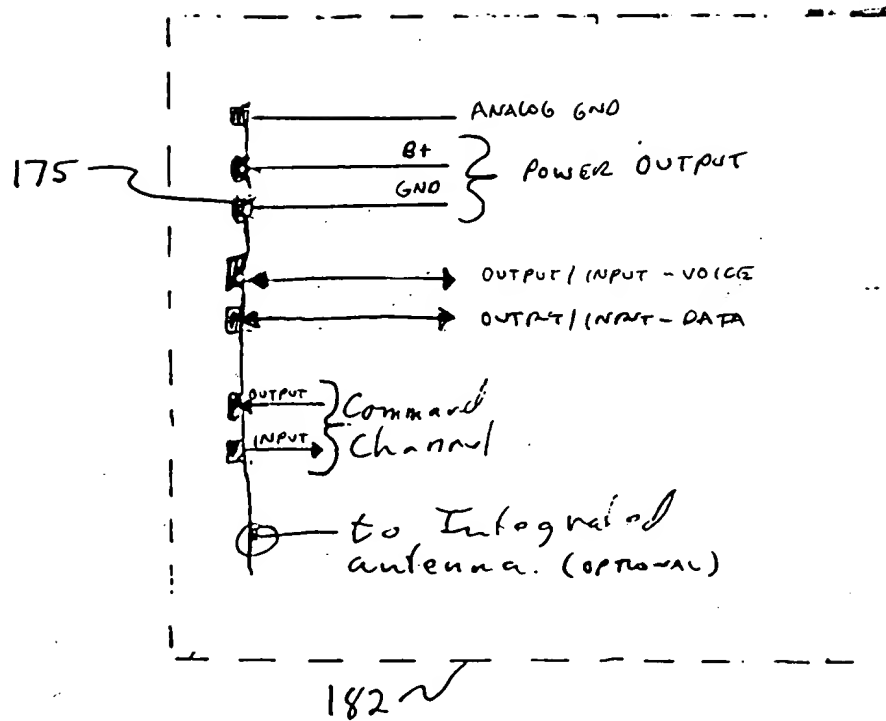 ANALOG GND
B+
GND
POWER OUTPUT
175
OUTPUT/INPUT - VOICE
OUTPUT/INPUT - DATA
OUTPUT
INPUT
Command
Channel
to Integrated
antenna. (OPTIONAL)
182